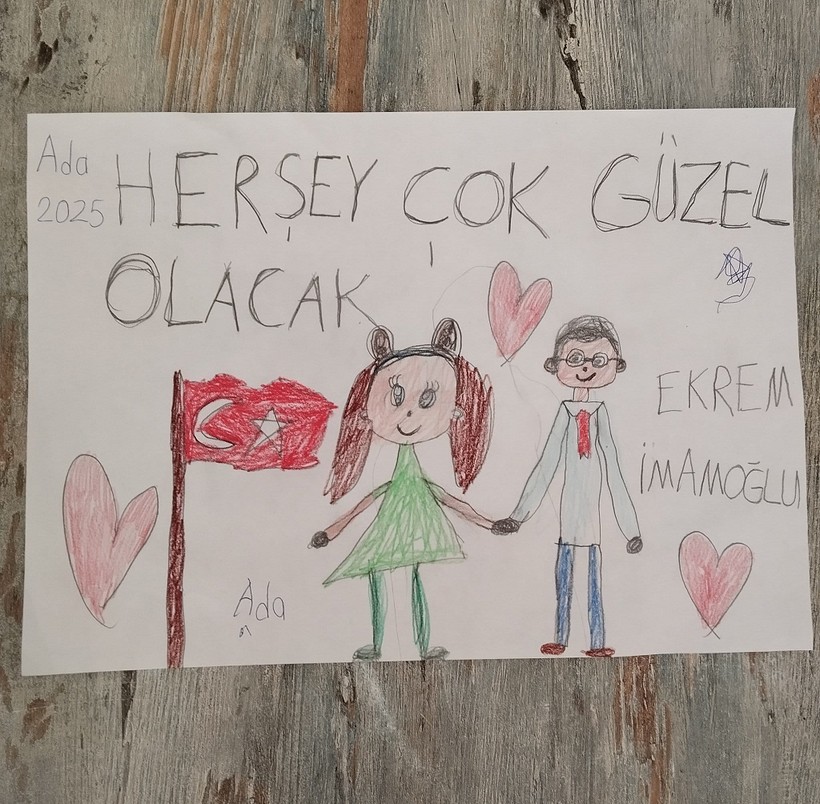 Ada
2025
HERŞEY ÇOK GÜZEL
OLACAK
EKREM
İMAMOĞLU
Ada